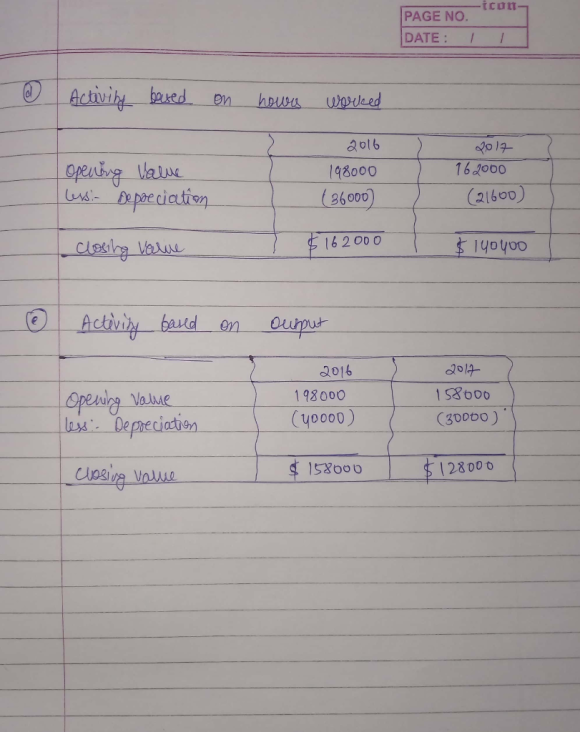 icon
PAGE NO.
DATE : / /
(d) Activity based on hours worked
2016 2017
Opening Value 198000 162000
less:- Depreciation (36000) (21600)
Closing Value $ 162000 $ 140400
(e) Activity based on Output
2016 2017
Opening Value 198000 158000
less:- Depreciation (40000) (30000)
Closing Value $ 158000 $ 128000